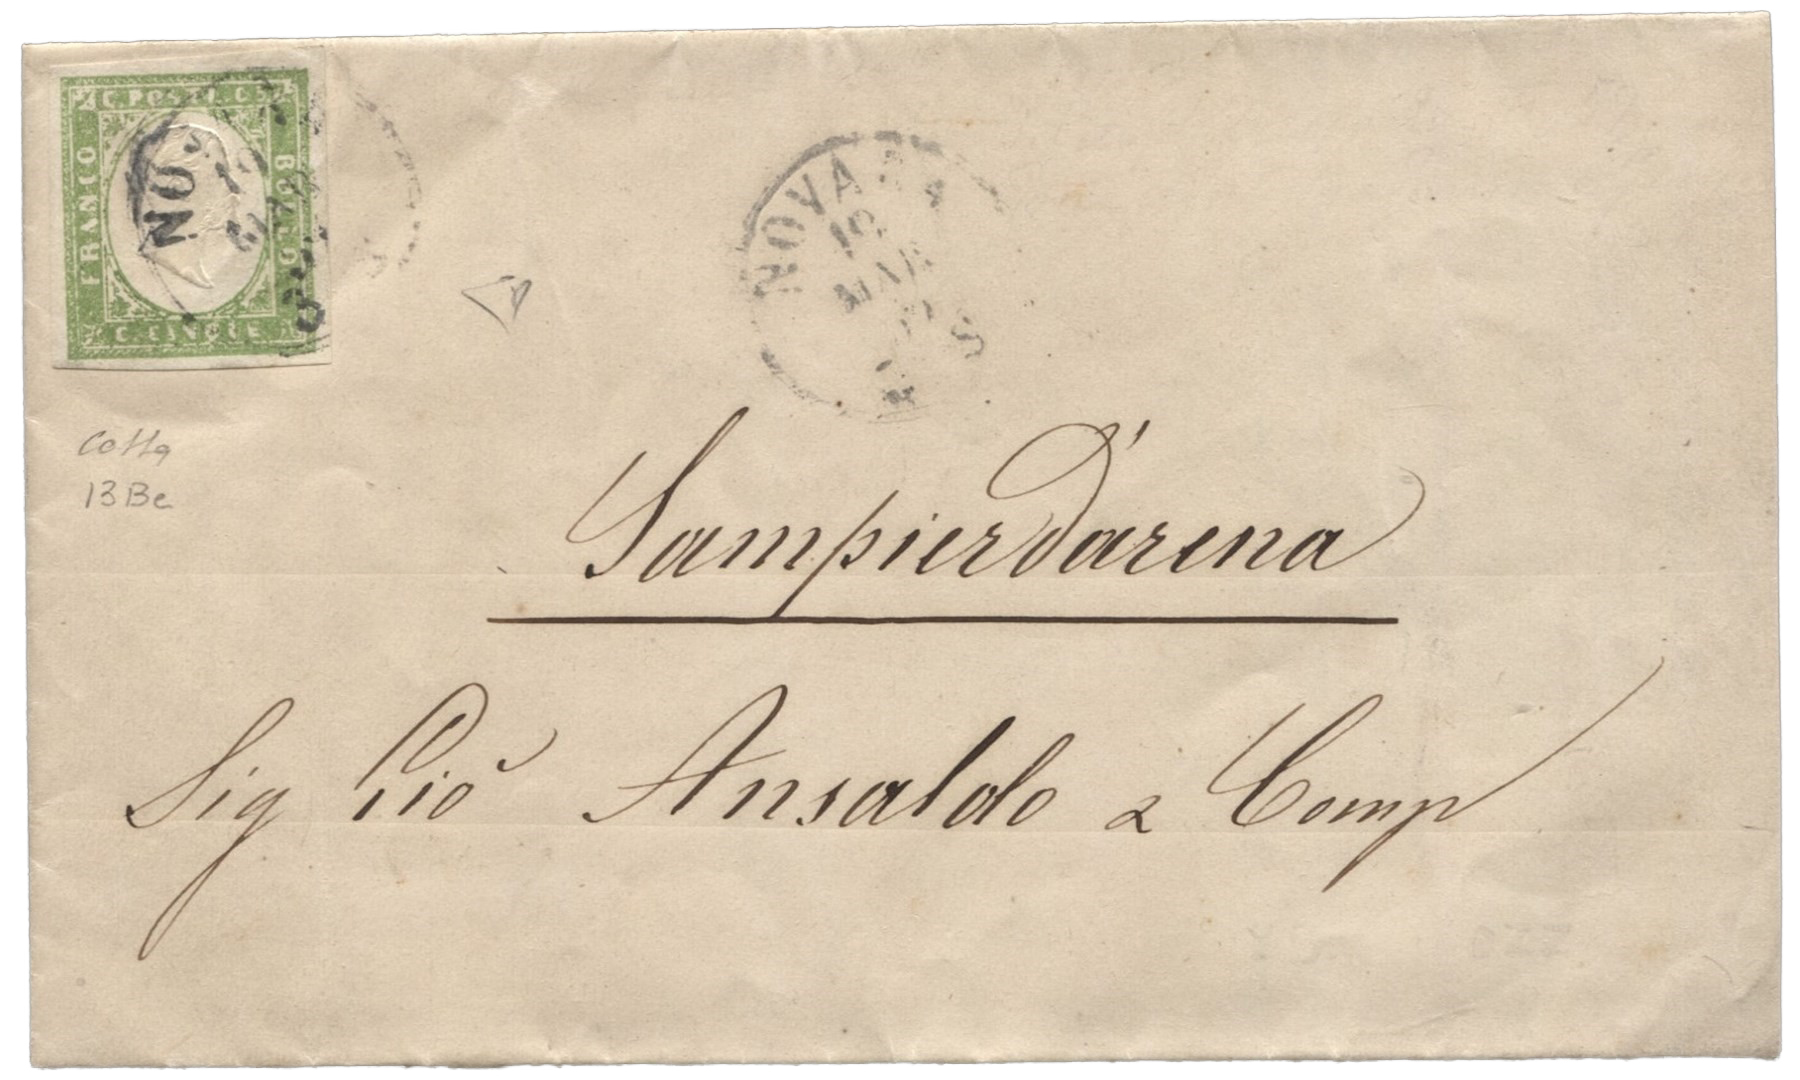 C. POSTE C.
FRANCO
BOLLO
C. CINQUE
NO
NOVARA
MAR
Cotta
13Be
Sampierd'arena
Sig Gio Ansaldo & Comp